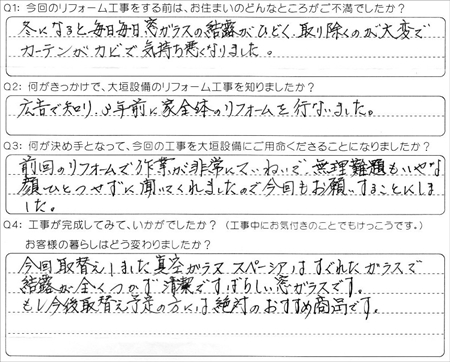 Q1: 今回のリフォーム工事をする前は、お住まいのどんなところがご不満でしたか？
冬になると毎日毎日窓ガラスの結露がひどく、取り除くのが大変で
カーテンがカビで気持ち悪くなりました。
Q2: 何がきっかけで、大垣設備のリフォーム工事を知りましたか？
広告で知り、3年前に家全体のリフォームを行ないました。
Q3: 何が決め手となって、今回の工事を大垣設備にご用命くださることになりましたか？
前回のリフォームで作業が非常にていねいで、無理難題もいやな
顔ひとつせずに聞いてくれましたので今回もお願いすることにしま
した。
Q4: 工事が完成してみて、いかがでしたか？（工事中にお気付きのことでもけっこうです。）
お客様の暮らしはどう変わりましたか？
今回取替えしました真空ガラス スペーシアはすぐれたガラスで
結露が全くつかず清潔ですばらしい窓ガラスです。
もし今後取替え予定の方には絶対のおすすめ商品です。